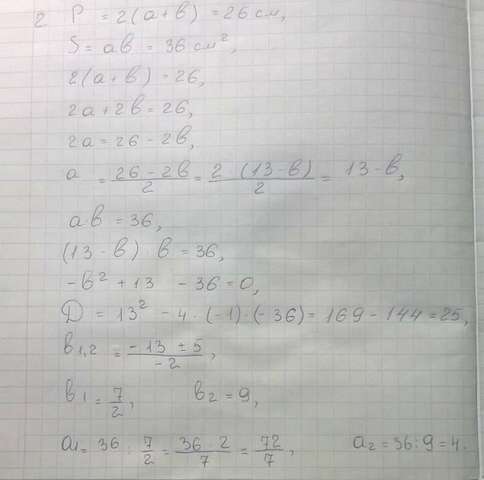 2 P = 2(a+b) = 26 см,
S = ab = 36 см²,
2(a+b) = 26,
2a+2b=26,
2a=26-2b,
a = \frac{26-2b}{2} = \frac{2 (13-b)}{2} = 13-b,
a·b = 36,
(13-b) b = 36,
-b² + 13 - 36 = 0,
D = 13² - 4·(-1)·(-36) = 169 - 144 = 25,
b₁,₂ = \frac{-13 ± 5}{-2},
b₁ = \frac{7}{2}, b₂ = 9,
a₁ = 36 : \frac{7}{2} = \frac{36·2}{7} = \frac{72}{7}, a₂ = 36:9 = 4.